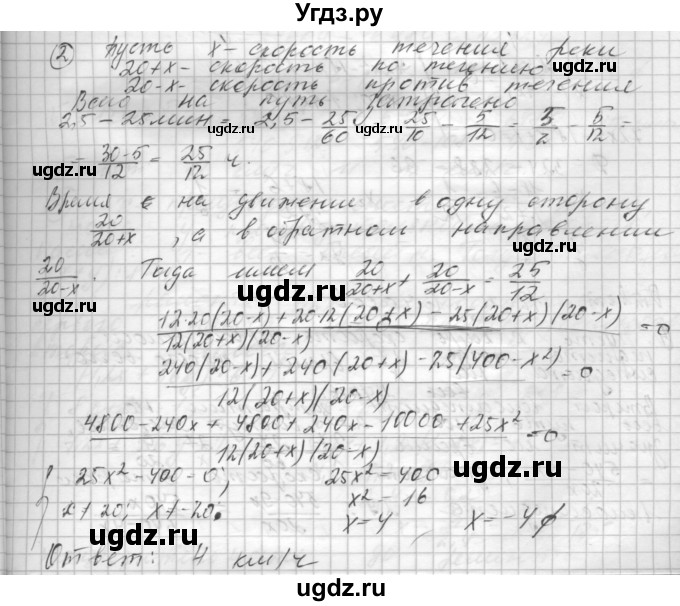 Угдз.ру
② Пусть x - скорость течения реки
20+x - скорость по течению
20-x - скорость против течения
Всего на путь затрачено
2,5 - 25 мин = 2,5 - 25/60 = 25/10 - 5/12 = 5/2 - 5/12 =
= 30-5/12 = 25/12 ч.
Время на движение в одну сторону
20/20+x, а в обратном направлении
20/20-x. Тогда имеем 20/20+x + 20/20-x = 25/12
12·20(20-x) + 20·12(20+x) - 25(20+x)(20-x) / 12(20+x)(20-x) = 0
240(20-x) + 240(20+x) - 25(400-x²) / 12(20+x)(20-x) = 0
4800 - 240x + 4800 + 240x - 10000 + 25x² / 12(20+x)(20-x) = 0
{ 25x² - 400 = 0; 25x² = 400
x ≠ 20; x ≠ -20. x² = 16
x = 4 x = -4
Ответ: 4 км/ч
uгдз.ру
uгдз.ру
uгдз.ру
uгдз.ру
uгдз.ру
uгдз.ру
uгдз.ру
uгдз.ру